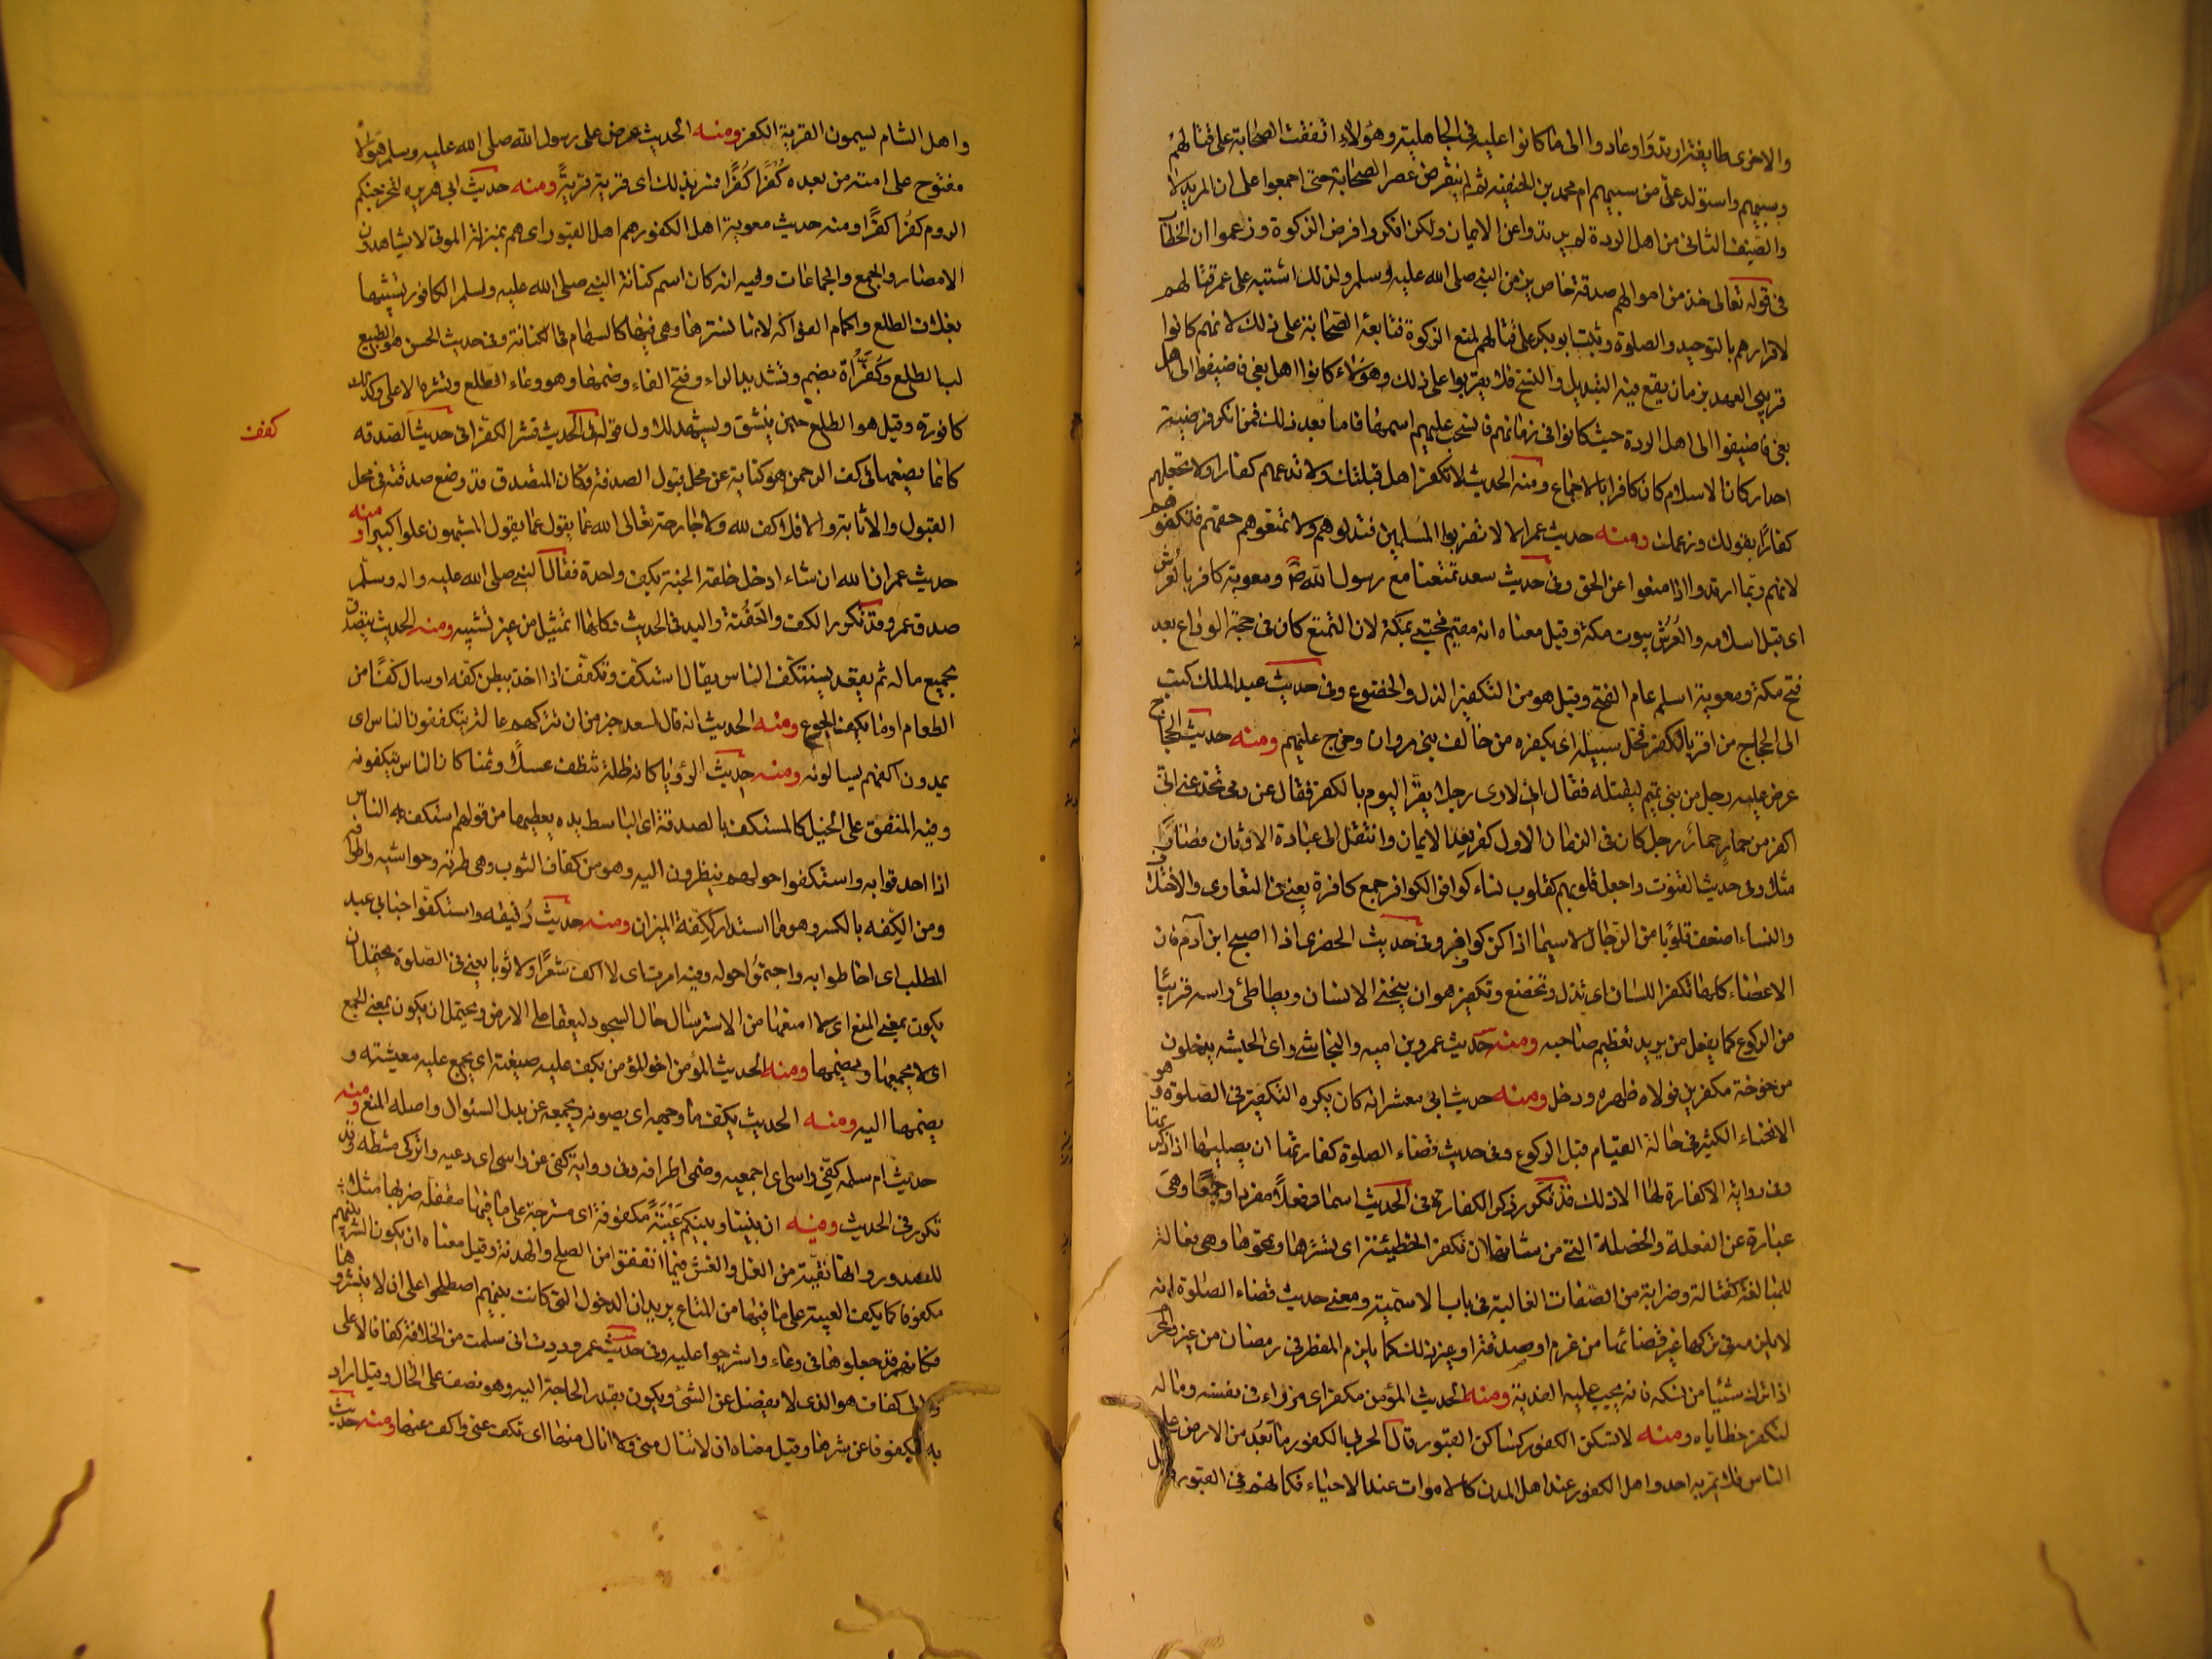 والاخرى طايفة ارتدوا وعادوا الى ما كانوا عليه فى الجاهلية وهؤلاء اتفقت الصحابة على قتالهم
وسبيهم واستولد على من سبيهم ام محمد بن الحنفيه ثم لم ينقرض عصر الصحابة حتى اجمعوا على ان المرتد لا
والصنف الثانى من اهل الردة لم يرتدوا عن الايمان ولكن انكروا فرض الزكوة وزعموا ان الخطاب
فى قوله تعالى خذ من اموالهم صدقة خاص بزمن النبى صلى الله عليه وسلم ولذلك اشتبه على عمر قتالهم
لاقرارهم بالتوحيد والصلوة وثبت ابو بكر على قتالهم لمنع الزكوة فتابعه الصحابة على ذلك لانهم كانوا
قريبى العهد بزمان يقع فيه التبديل والنسخ فلم يقروا على ذلك وهؤلاء كانوا اهل بغى فاضيفوا الى اهل
بغى فاضيفوا الى اهل الردة حيث كانوا فى زمانهم فانسحب عليهم اسمها فاما بعد ذلك فمن انكر فرضية
احد اركان الاسلام كان كافرا بالاجماع ومنه الحديث لا تكفر اهل قبلتك ولا تدعهم كفارا ولا تجعلهم
كفارا بقولك وزعمك ومنه حديث عمر الا لا تضربوا المسلمين فتذلوهم ولا تمنعوهم حقهم فتكفروهم
لانهم ربما ارتدوا اذا منعوا عن الحق وفى حديث سعد تمتعنا مع رسول الله ص ومعوية كافر بالعرش
اى قبل اسلامه والعرش بيوت مكة وقيل معناه انه مقيم مختبى بمكة لان التمتع كان فى حجة الوداع بعد
فتح مكة ومعوية اسلم عام الفتح وقيل هو من التكفير الذل والخضوع وفى حديث عبد الملك كتب
الى الحجاج من اقر بالكفر فخل سبيله اى بكفره من خالف بنى مروان وخرج عليهم ومنه حديث الحجاج
عرض عليه رجل من بنى تميم ليقتله فقال انى لارى رجلا يقر اليوم بالكفر فقال عن دمى تخدعنى انى
اكفر من حمار حمار رجل كان فى الزمان الاول كفر بعد الايمان وانتقل الى عبادة الاوثان فصار
مثلا وفى حديث القنوت واجعل قلوبهم كقلوب نساء كوافر الكوافر جمع كافرة يعنى فى التعادى والاختلاف
والنساء اضعف قلوبا من الرجال لا سيما اذا كن كوافر وفى حديث الخدرى اذا اصبح ابن آدم فان
الاعضاء كلها تكفر اللسان اى تذل وتخضع وتكفير هو ان ينحنى الانسان ويطاطئ راسه قريبا
من الركوع كما يفعل من يريد تعظيم صاحبه ومنه حديث عمرو بن اميه والنجاشى راى الحبشه يدخلون
من خوخة مكفرين فولاه ظهره ودخل ومنه حديث ابى معشر انه كان يكره التكفير فى الصلوة وهو
الانحناء الكثير فى حالة القيام قبل الركوع وفى حديث قضاء الصلوة كفارتها ان يصليها اذا ذكرها
وفى رواية لا كفارة لها الا ذلك قد تكرر ذكر الكفارة فى الحديث اسما وفعلا مفردا وجمعا وهى
عبارة عن الفعلة والخصلة التى من شانها ان تكفر الخطيئة اى تسترها وتمحوها وهى فعالة
للمبالغة كقتالة وضرابة من الصفات الغالبة فى باب الاسمية ومعنى حديث قضاء الصلوة انه
لا يلزمه فى تركها غير قضائها من غرم او صدقة او غير ذلك كما يلزم المفطر فى رمضان من غير عذر
اذا ترك شيئا من نسكه فانه يجب عليه الفدية ومنه الحديث المؤمن مكفر اى مرزاء فى نفسه وماله
لتكفر خطاياه ومنه لا تسكن الكفور كساكن القبور قال الحربى الكفور ما بعد من الارض عن
الناس فلا يمر به احد واهل الكفور عند اهل المدن كالاموات عند الاحياء فكانهم فى القبور
واهل الشام يسمون القرية الكفر ومنه الحديث عرض على رسول الله صلى الله عليه وسلم هؤلاء
مفتوح على امته من بعده كفرا كفرا فسر بذلك اى قرية قرية ومنه حديث ابى هريره لتخرجنكم
الروم كفرا كفرا ومنه حديث معوية اهل الكفور هم اهل القبور اى هم بمنزلة الموتى لا يشاهدون
الامصار والجمع والجماعات وفيه انه كان اسم كنانة النبى صلى الله عليه وسلم الكافور تشبيها
بغلاف الطلع واكمام الفواكه لانها تسترها وهى فيها كالسهام فى الكنانة وفى حديث الحسن هو الطبيع
لب الطلع وكفراه بضم وتشديد الراء وفتح الفاء وضمها وهو وعاء الطلع وقشره الاعلى وكذلك
كافوره وقيل هو الطلع حين ينشق ويشهد للاول قوله فى الحديث قشر الكفرى فى حديث الصدقه
كفف
كانما يضعها فى كف الرحمن هو كناية عن محل قبول الصدقة فكان المتصدق قد وضع صدقته فى محل
القبول والاثابة والا فلا كف لله ولا جارحة تعالى الله عما يقول عما يقول المشبهون علوا كبيرا ومنه
حديث عمر ان الله ان شاء ادخل خلقه الجنة بكف واحدة فقال النبى صلى الله عليه واله وسلم
صدق عمر وقد تكرر الكف والحفنة واليد فى الحديث وكلها تمثيل من غير تشبيه ومنه الحديث يتصدق
بجميع ماله ثم يقعد يستكف الناس يقال استكف وتكفف اذا اخذ ببطن كفه او سال كفا من
الطعام او ما يكف الجوع ومنه الحديث انه قال لسعد خير من ان تتركهم عالة يتكففون الناس اى
يمدون اكفهم يسالونه ومنه حديث الرؤيا كانه ظلة تنظف عسلا وسمنا كان الناس يتكفونه
وفيه المنفق على الخيل كالمستكف بالصدقة اى الباسط يده يعطيها من قولهم استكف به الناس
اذا احدقوا به واستكفوا حولهم ينظرون اليه وهو من كفاف الثوب وهى طرته وحواشيه واطرافه
ومن الكفه بالكسر وهو ما استدار ككفة الميزان ومنه حديث رقيقه واستكفوا جنابى عبد
المطلب اى احاطوا به واجتمعوا حوله وفيه امرت اى لا اكف شعرا ولا ثوبا يعنى فى الصلوة يحتمل ان
يكون بمعنى المنع اى لا امنعها من الاسترسال حال السجود ليقعا على الارض ويحتمل ان يكون بمعنى الجمع
اى لا يجمعها ويضمها ومنه الحديث المؤمن اخو المؤمن يكف عليه ضيعته اى يجمع عليه معيشته و
يضمها اليه ومنه الحديث يكف ماء وجهه اى يصونه ويجمعه عن بذل السئوال واصله المنع ومنه
حديث ام سلمه كفى راسى اى اجمعيه وضمى اطرافه وفى رواية كفى عن راسى اى دعيه واتركى مشطه وقد
تكرر فى الحديث ومنه ان بيننا وبينكم عيبة مكفوفة اى مشرجة على ما فيها مقفلة ضربها مثلا
للصدور وانها نقية من الغل والغش فيما اتفقوا من الصلح والهدنة وقيل معناه ان يكون الشر بينهم
مكفوفا كما يكف العيبة على ما فيها من المتاع يريد ان الدخول التى كانت بينهم اصطلحوا على ان لا ينشروها
فكانهم قد جعلوها فى وعاء واشرجوا عليه وفى حديث عمر وددت انى سلمت من الخلافة كفافا لا على
ولا لى كفاف هو الذى لا يفضل عن الشئ ويكون بقدر الحاجة اليه وهو نصب على الحال وقيل اراد
به مكفوفا عن شرها وقيل معناه ان لا تنال منى ولا انال منها اى تكف عنى واكف عنها ومنه حديث